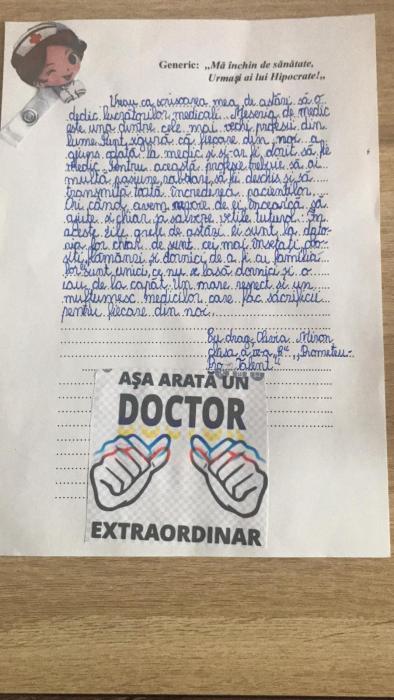 Generic: „Mă închin de sănătate,
Urmași ai lui Hipocrate!„
Vreau ca scrisoarea mea de astăzi să o
dedic lucrătorilor medicali. Meseria de medic
este una dintre cele mai vechi profesii din
lume. Sunt sigură că fiecare din noi a
ajuns odată la medic și și-ar fi dorit să fie
medic. Pentru această profesie trebuie să ai
multă pasiune, răbdare, să fii deschis și să
transmită toată încrederea pacienților.
Ori când avem nevoie de ei încearcă să
ajute și chiar să salveze viețile tuturor. În
aceste zile grele de astăzi ei sunt la dato-
ria lor chiar de sunt cei mai însetați obo-
siți, flămânzi și dornici de a fi cu familia
lor. Sunt unici, ce nu se lasă dornici și o
iau de la capăt. Un mare respect și un
mulțumesc medicilor care fac sacrificii
pentru fiecare din noi.
Cu drag, Olivia Miron
clasa a "B" „Prometeu-
Pro Talent"
AȘA ARATĂ UN
DOCTOR
EXTRAORDINAR